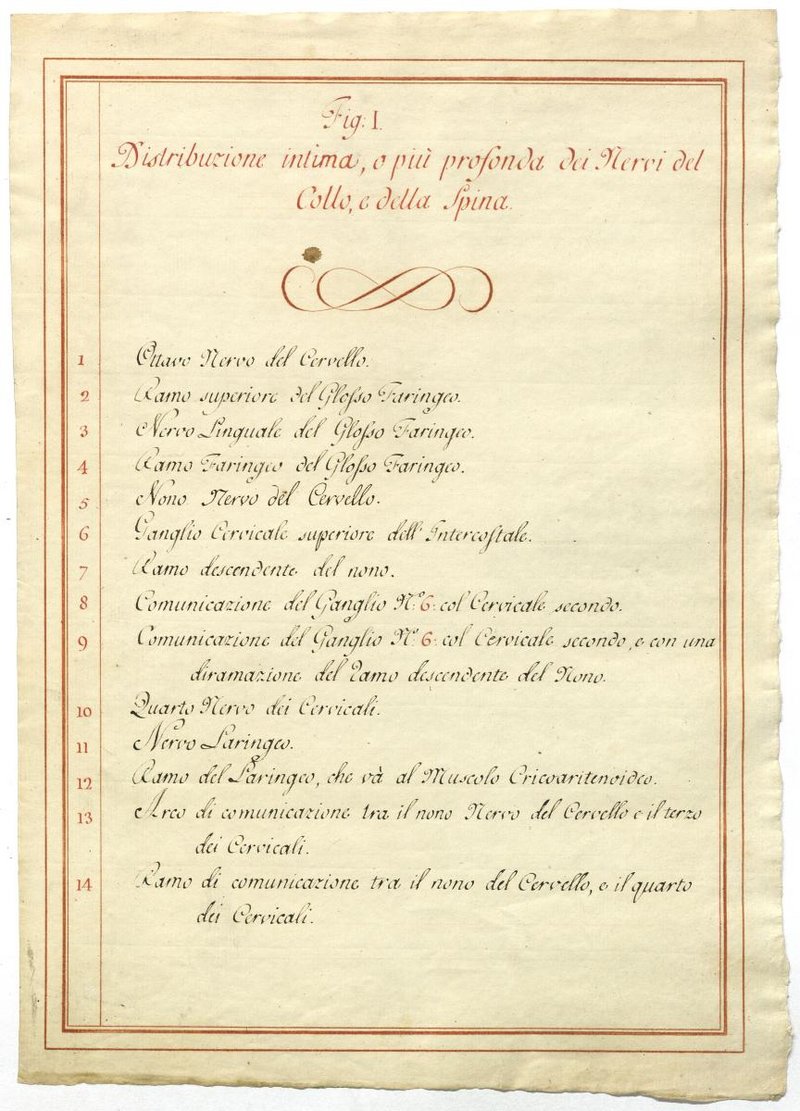 Fig: I.
Distribuzione intima, o più profonda dei Nervi del
Collo, e della Spina.
1 Ottavo Nervo del Cervello.
2 Ramo superiore del Gloſso Faringeo.
3 Nervo Linguale del Gloſso Faringeo.
4 Ramo Faringeo del Gloſso Faringeo.
5 Nono Nervo del Cervello.
6 Ganglio Cervicale superiore dell' Intercoſtale.
7 Ramo descendente del nono.
8 Comunicazione del Ganglio N.º 6: col Cervicale secondo.
9 Comunicazione del Ganglio N.º 6: col Cervicale secondo, e con una
diramazione del Ramo descendente del Nono.
10 Quarto Nervo dei Cervicali.
11 Nervo Laringeo.
12 Ramo del Laringeo, che và al Muscolo Cricoaritenoideo.
13 Arco di comunicazione tra il nono Nervo del Cervello e il terzo
dei Cervicali.
14 Ramo di comunicazione tra il nono del Cervello, e il quarto
dei Cervicali.